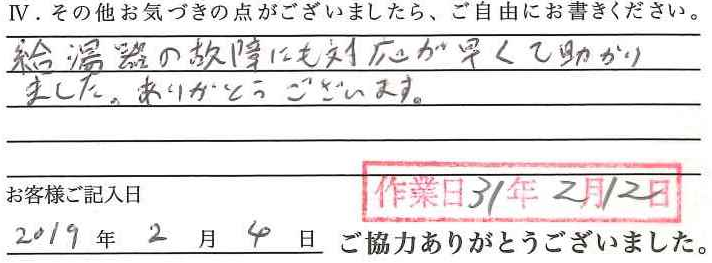 Ⅳ．その他お気づきの点がございましたら、ご自由にお書きください。
給湯器の故障にも対応が早くて助かり
ました。ありがとうございます。
お客様ご記入日
作業日31年2月12日
2019年2月4日
ご協力ありがとうございました。